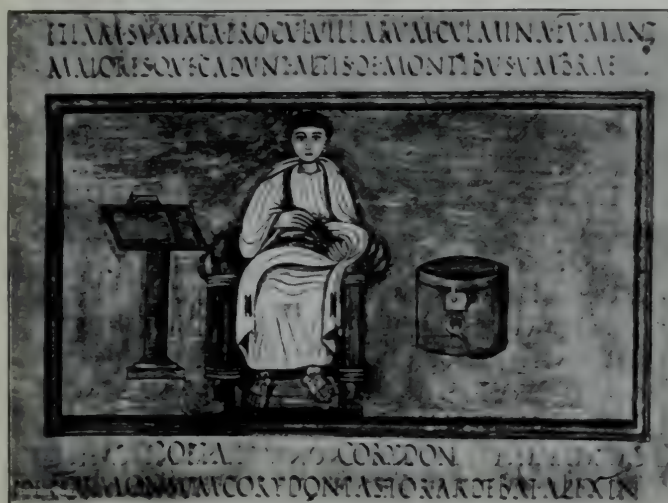 ETIAMSVMMAPROCVLVILLARVMCVLMINAFVMANT
MAIORESQVECADVNTALTISDEMONTIBVSVMBRAE
POETA CORYDON
FORMONSVMCORYDONPASTORARDEBATALEXIN